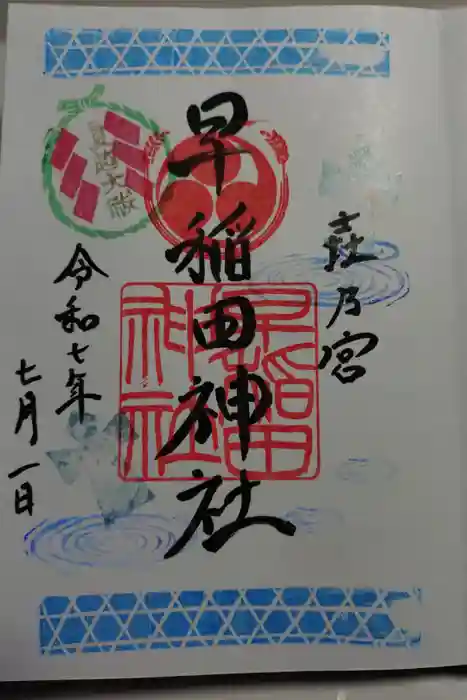 㐂乃宮
早稲田神社
早稲田神社
令和七年
七月一日
夏越大祓